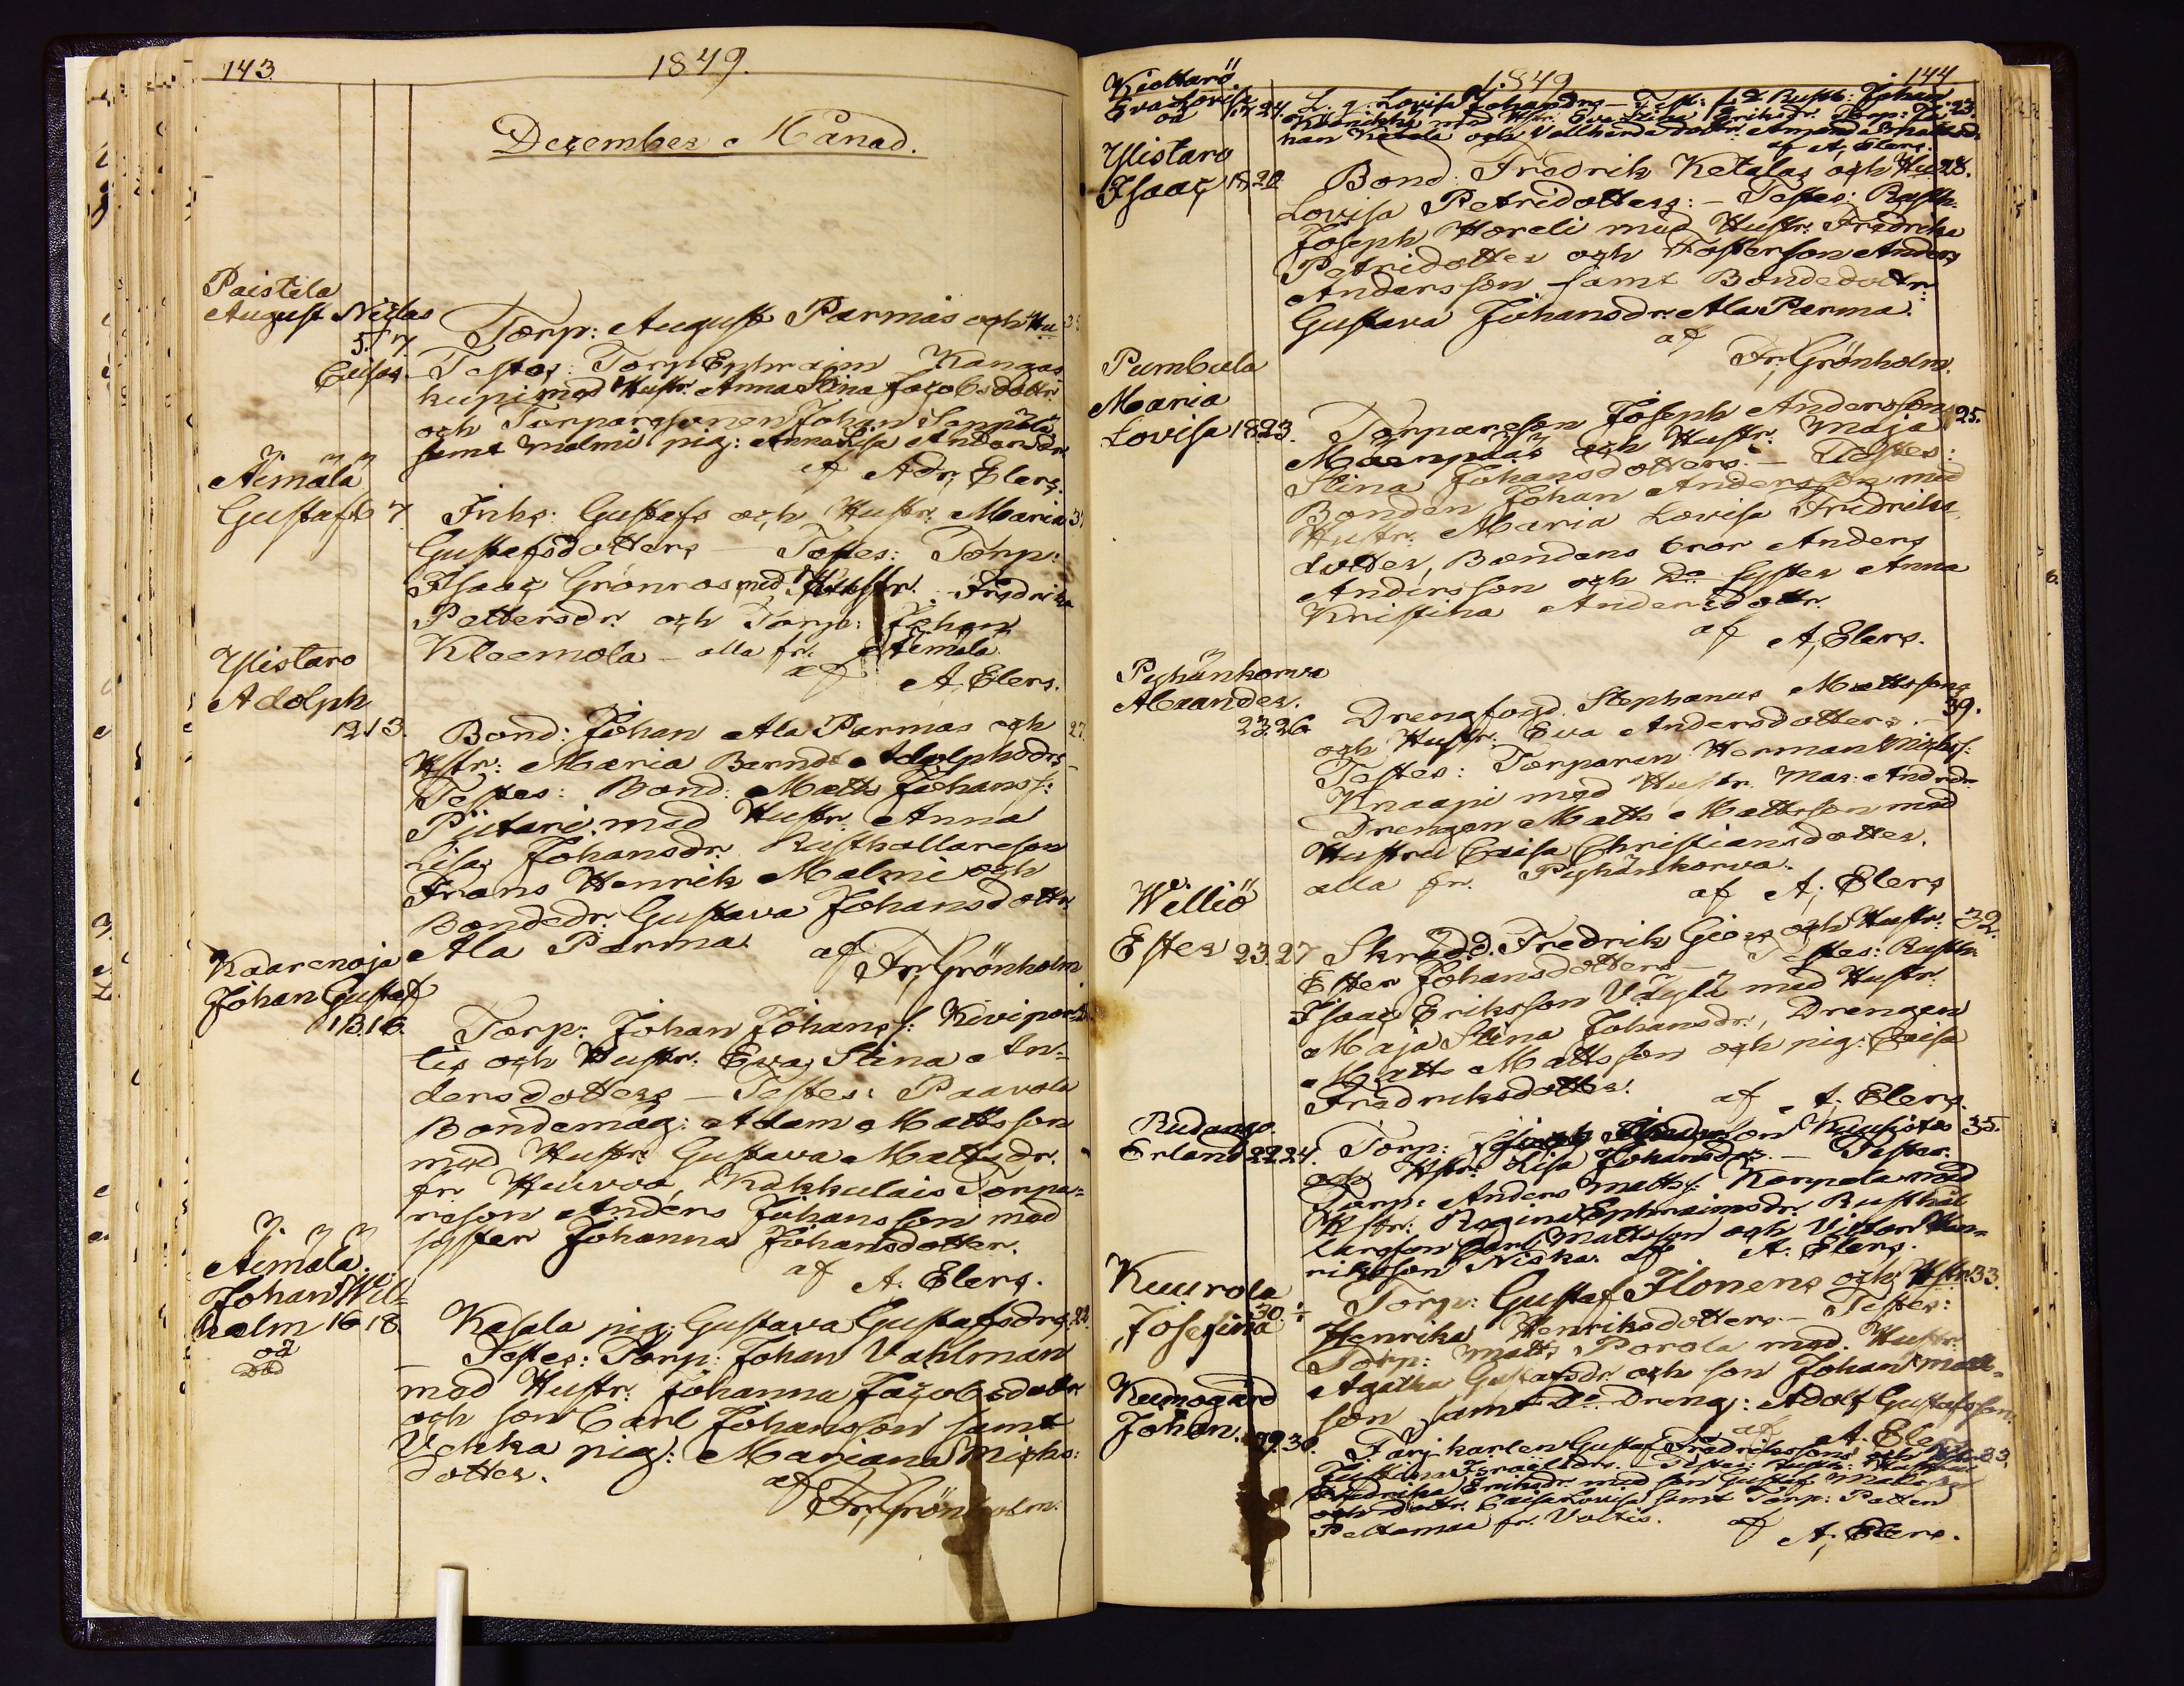 143.
1849.
Dezember Månad.
Paistila
August Niclas
5. 7.
Torp: August Parmas och Hu
Caisas. Testes: Torp Ephraim Kangas
med Hustr. Anna Stina Jacobsdottr
och Torparesonen Johan Seppälä
samt Malmi pig: Anna Lisa Andersdr
af Adr. Elers.
Äimälä
Gustaf 6 7
Inhs: Gustafs och Hustr. Maria
Gustafsdotters — Testes: Torp:
Isaac Grönroos med Hustr. Fredrika
Pettersdr. och Torp: Johan
Kleemola — alla fr. Äimälä.
af A. Elers.
Ylistaro
Adolph
12 13.
Bond: Johan Ala Parmas och 27.
Hstr: Maria Berndt Adolphsdrs —
Testes: Bond: Matts Johanss:
Piutari med Hustr. Anna
Lisa Johansdr. Rusthollareson
Frans Henrik Malmi och
Bondedr. Gustava Johansdottr
Ala Parma. af Fr. Grönholm
Kaarenoja
Johan Gustaf
13 16.
Torp: Johan Johans s: Kivipor-
tis och Hustr: Eva Stina An-
dersdotters — Testes: Paavola
Bondemåg: Adam Mattsson
med Hustr. Gustava Mattsdr.
fr. Heuvoa, Kakkulais Torpa-
reson Anders Johansson med
syster Johanna Johansdotter.
af A. Elers.
Äimälä.
Johan Wil-
helm 16 18.
oä
Död
Kasala pig: Gustava Gustafsdrs. 22.
— Testes: Torp: Johan Vahlman
med Hustr. Johanna Jacobsdottr
och son Carl Johansson samt
Uckka pig: Mariana Michs:
dotter.
af Fr. Grönholm.
1849
144
Kiettarö
Eva Lovisa
oä 17 24.
L. q. Lovisa Johansdrs — Test: f. d. Rusth: Johan 23.
med Hstr. Eva Stina Eriksdr. Torp: Jo-
han Ketola och Vallhende dottr. Amanda Mattsd.
af A. Elers.
Ylistaro
Isaac 18 20
Bond: Fredrik Ketalas och Hu 28.
Lovisa Petridotters: — Testes: Rusth:
Joseph Horeli med Hustr. Fredrika
Petridotter och Fosterson Anders
Andersson samt Bondedottr:
Gustava Johansdr. Ala Parma.
af
Fr. Grönholm.
Pumbula
Maria
Lovisa 18 23.
Torpareson Joseph Anderssons 25.
Mäenpääs och Hustr. Maja
Stina Johansdotters. — Testes:
Bonden Johan Andersson med
Hustr. Maria Lovisa Fredriks-
dotter, Bondens bror Anders
Andersson och Do syster Anna
Kristina Andersdottr.
af A. Elers.
Pyhänkorva
Alexander.
23 26.
Drengfogd. Stephanus Mattssons 39.
och Hustr. Eva Andersdotters. —
Testes: Torparen Herman Michs:
Knaapi med Hustr. Mar: Andrdr.
Drengen Matts Mattsson med
Hustru Caisa Christiansdotter.
alla fr. Pyhänkorva.
af A. Elers
Williö
Ester 23. 27
Skrädd. Fredrik Giers och Hustr: 32.
Ester Johansdotters — Testes: Rusth:
Isaac Eriksson Väylä med Hustr.
Maja Stina Johansdr., Drengen
Matts Mattsson och pig: Caisa
Fredriksdotter.
af A. Elers.
Rudango.
Erland 22 24.
Torp: Kuusistos 35.
och Hstr. Lisa Johansdrs. — Testes:
Torp: Anders Matts s: Korpela med
Hstr: Regina Ephraimsdr. Rusthål-
lareson Carl Mattsson och Victor Hen-
riksson Niska. af A. Elers.
Kuurola
Josefina 30. 1/1
Torp: Gustaf Ilonens och Hstr 33.
Henrika Henriksdotters — Testes:
Torp: Matts Porola med Hustr.
Agatha Gustafsdr. och son Johan Matts-
son samt Do Dreng: Adolf Gustafsson.
af A. Elers
Kumogård
Johan. 29. 30.
Färjkarlen Gustaf Fredrikssons och 33.
Justina Israelsdr. Testes: Rusth:
Fredrika Eriksdr. med son Gustaf
och dottr. Caisa Lovisa samt Torp: Petter
Peltomaa fr. Voitis. af
A. Elers.